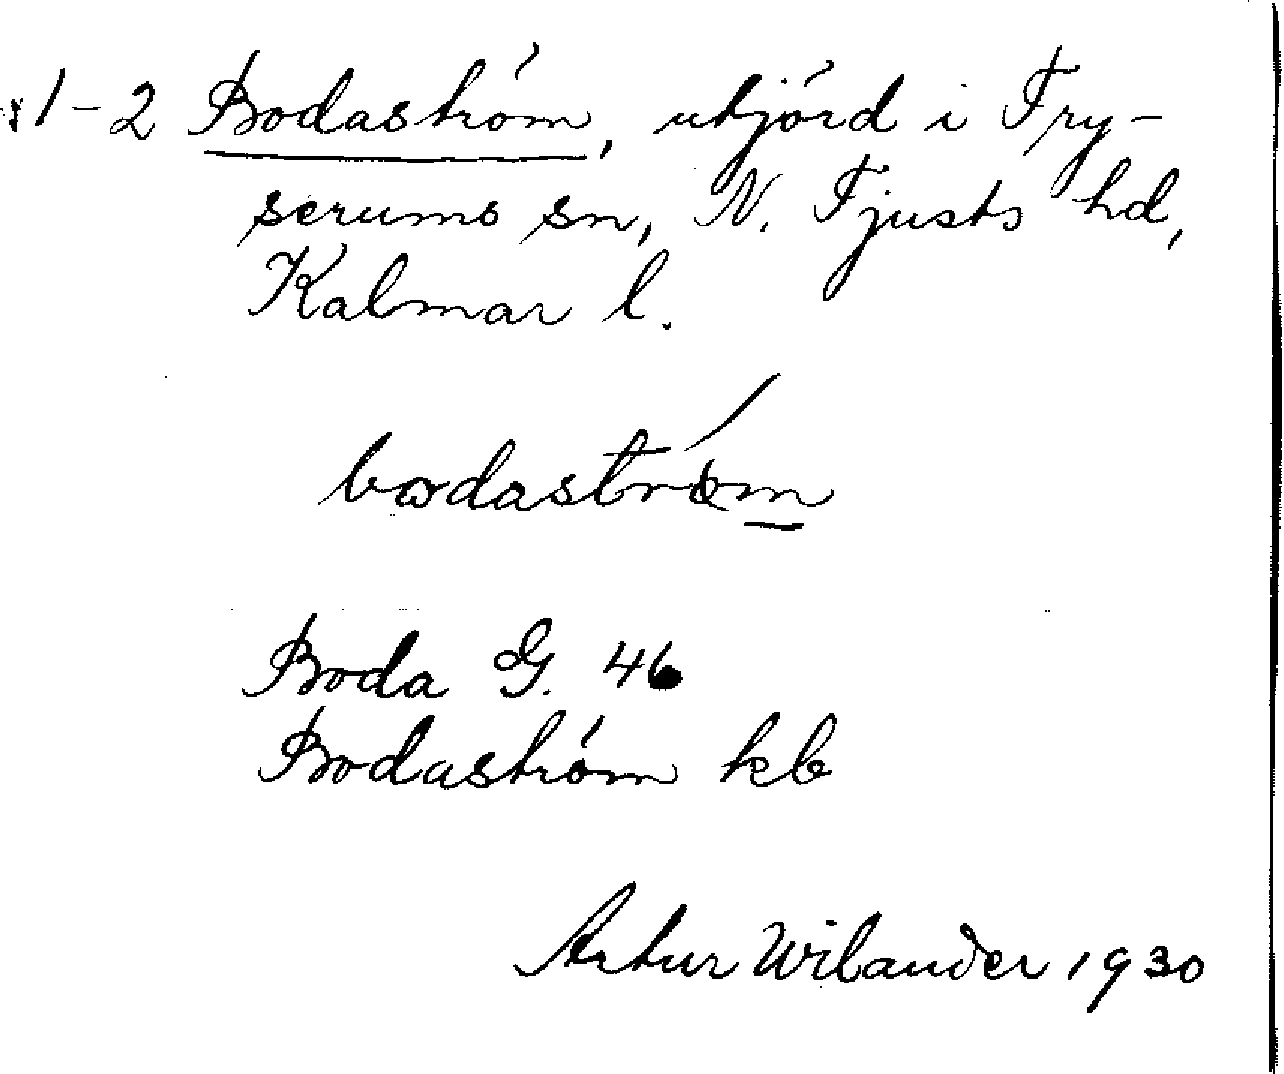 1-2 Bodaström, utjörd i Fry-
serums sn, N. Tjusts hd,
Kalmar l.
bodaström
Boda G. 46
Bodaström kb
Artur Wilander 1930